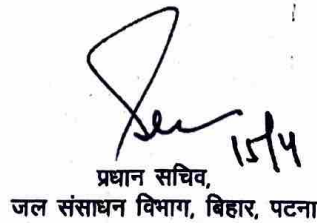 15/4
प्रधान सचिव,
जल संसाधन विभाग, बिहार, पटना